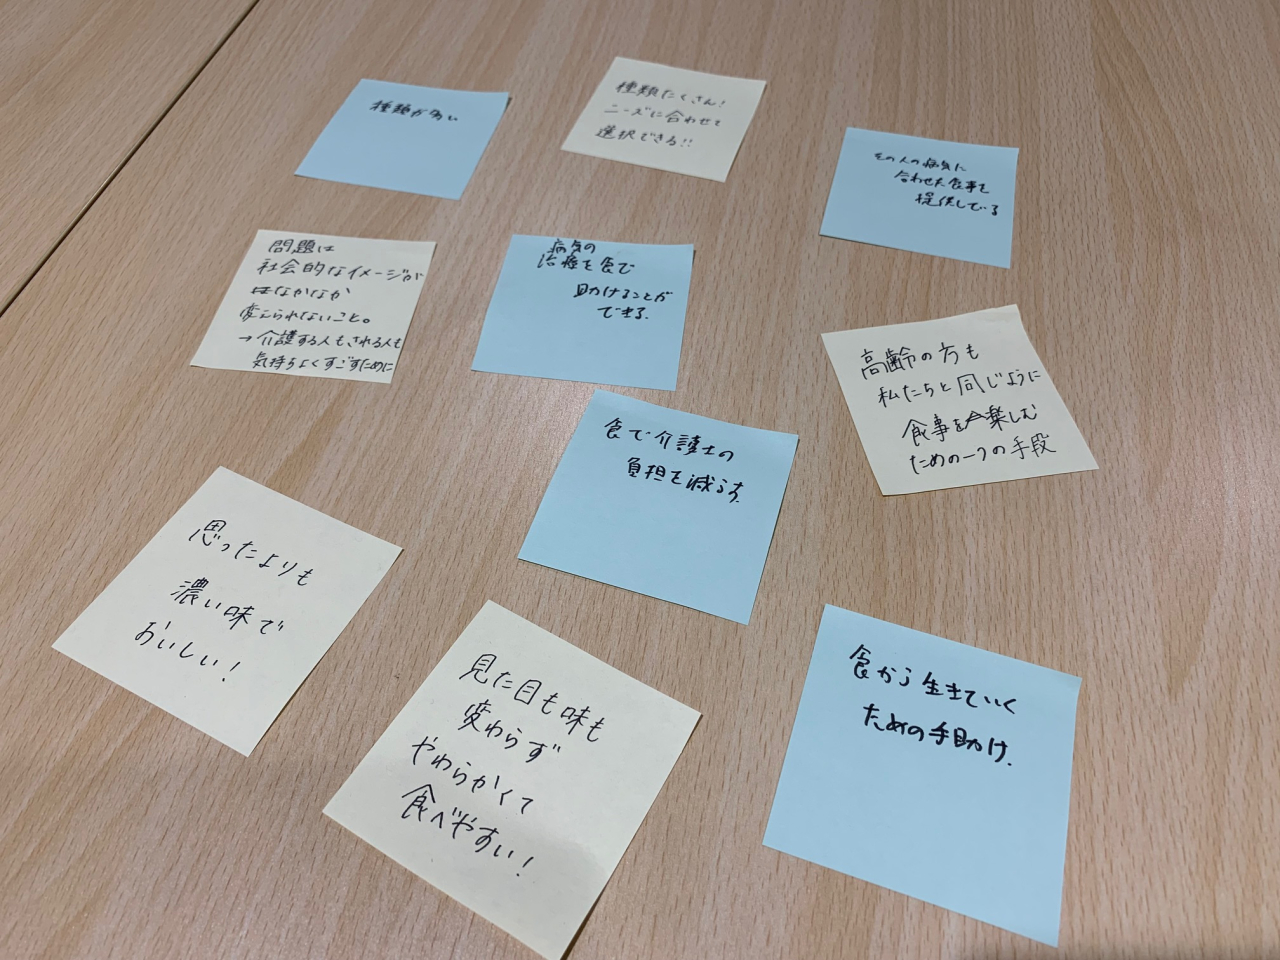 種類が多い
種類たくさん!
ニーズに合わせて
選択できる!!
その人の病気に
合わせた食事を
提供している
問題は
社会的なイメージが
なかなか
変えられないこと。
→介護する人も、される人も
気持ちよくすごすために
病気の
治療を食で
助けることが
できる.
高齢の方も
私たちと同じように
食事を楽しむ
ための一つの手段
食で介護士の
負担を減らす.
思ったよりも
濃い味で
おいしい!
見た目も味も
変わらず
やわらかくて
食べやすい!
食から生きていく
ための手助け.